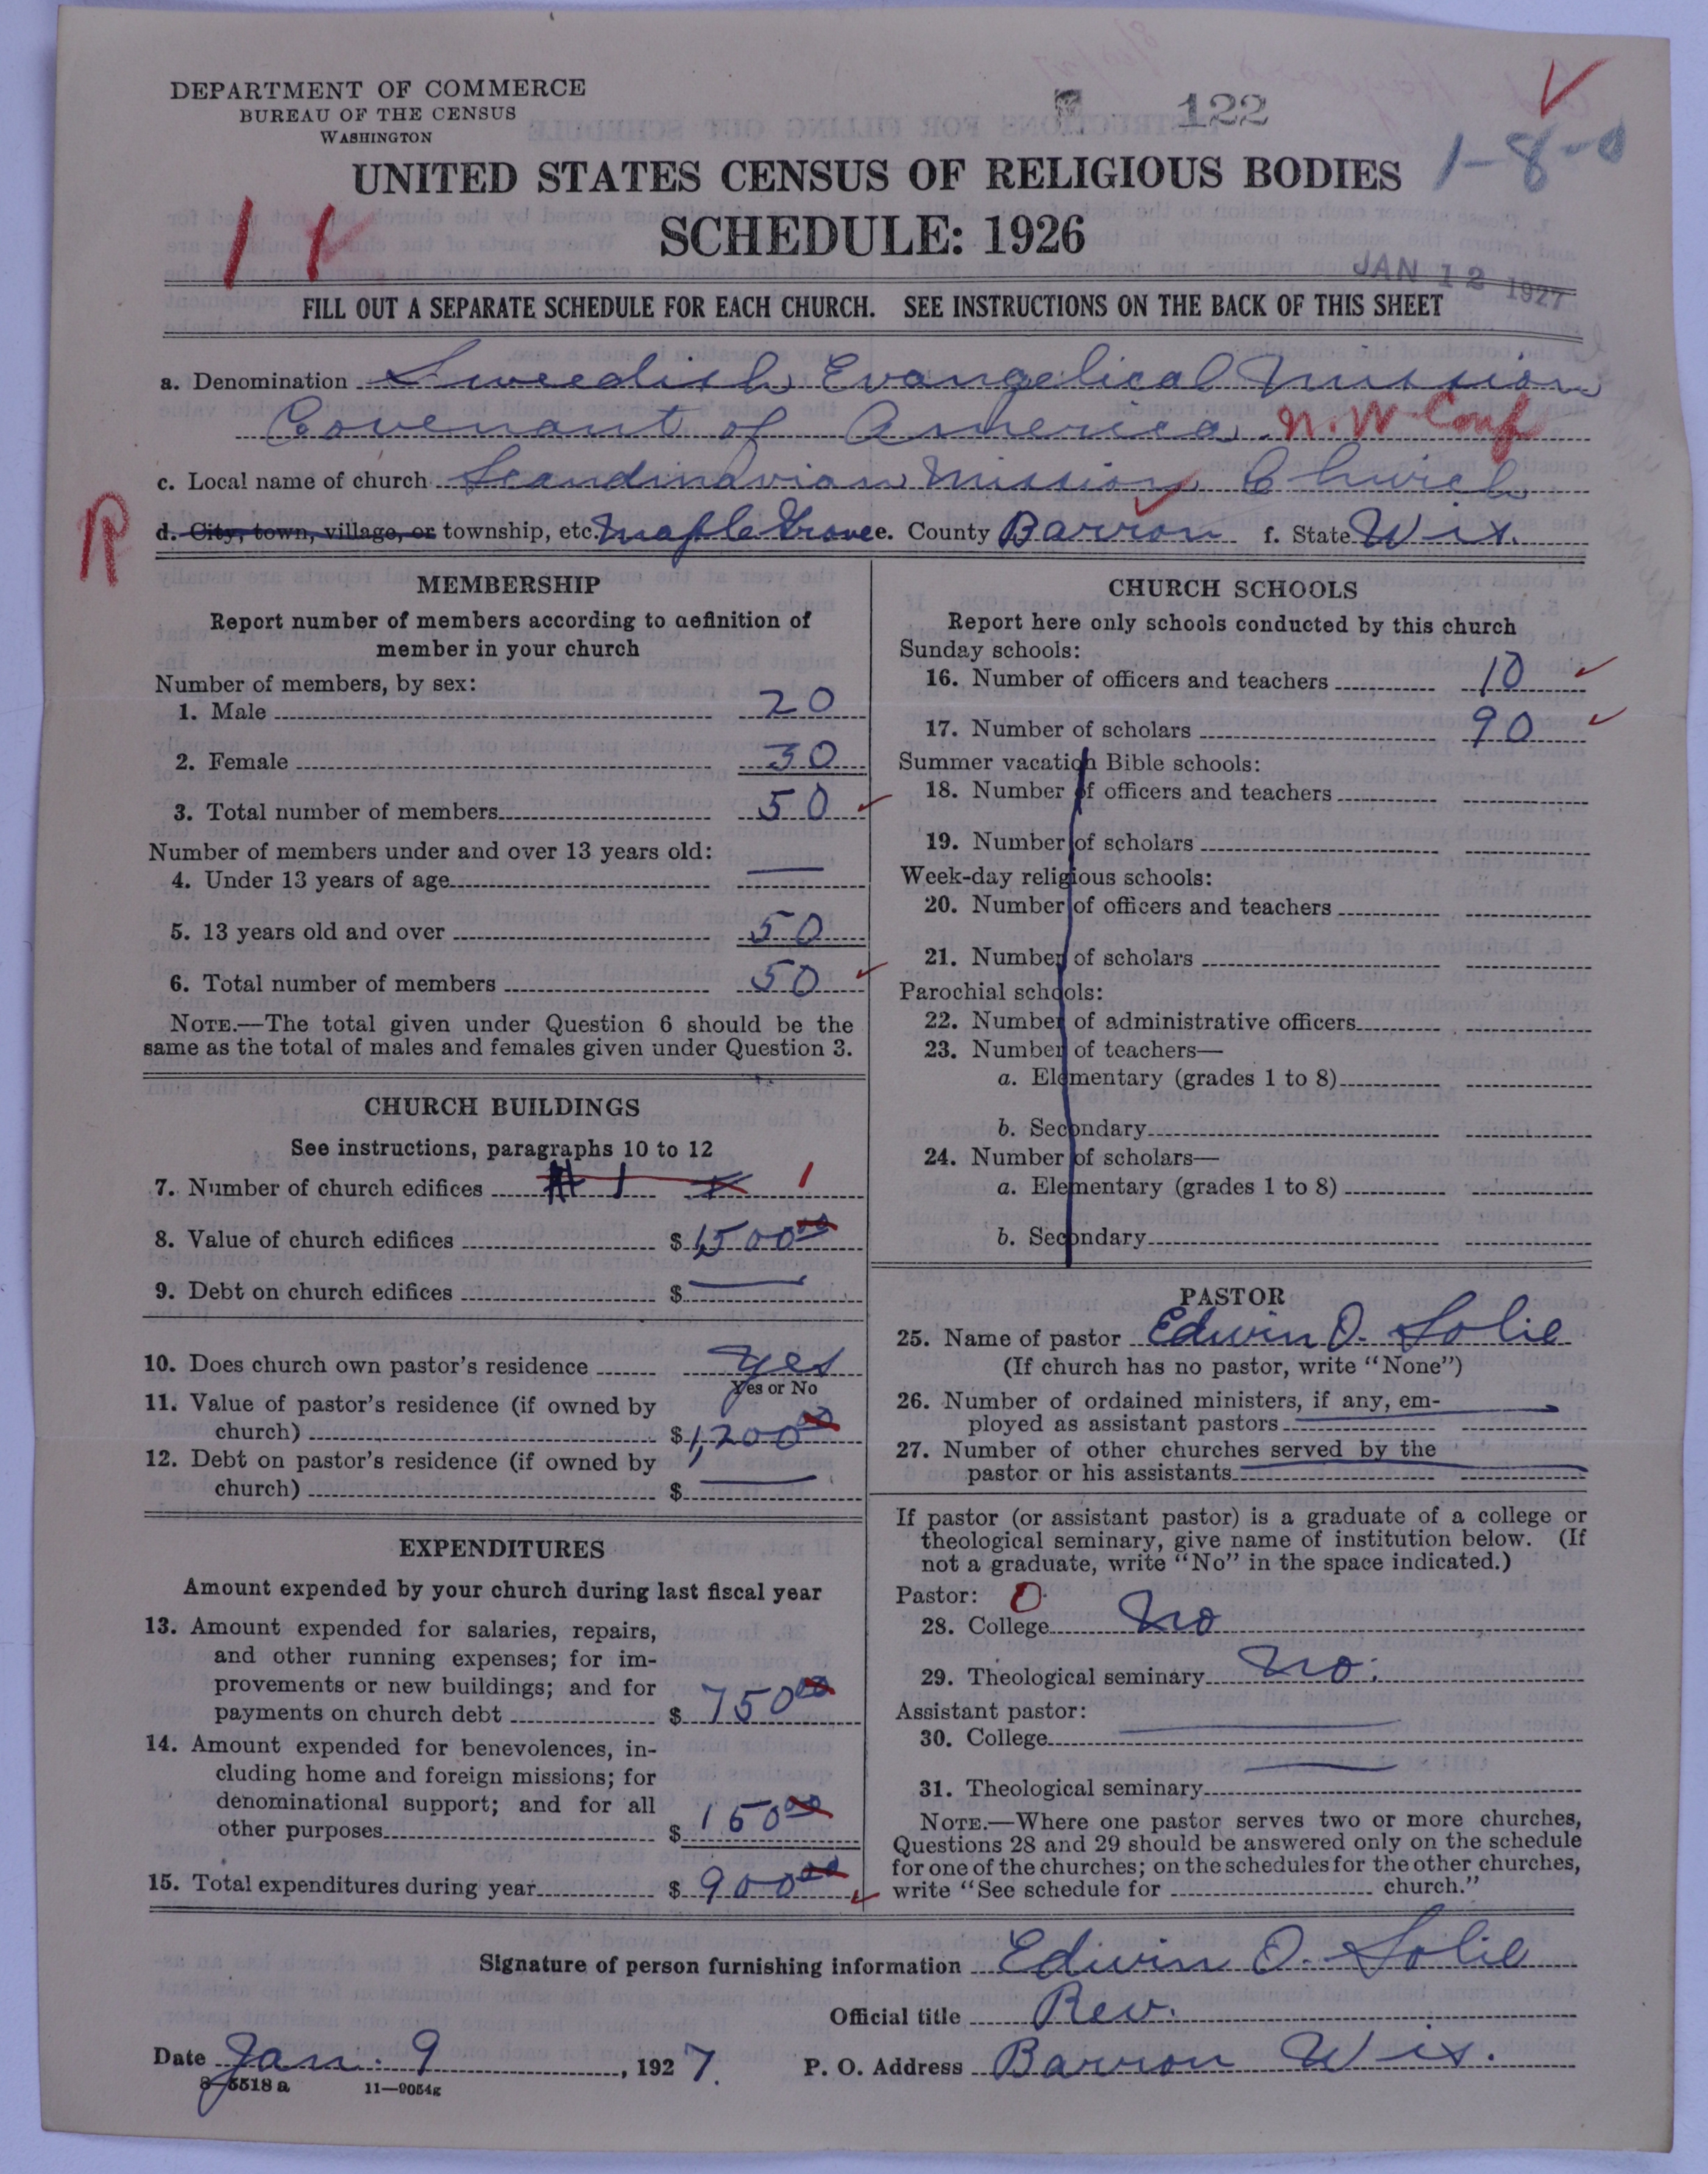 DEPARTMENT OF COMMERCE
BUREAU OF THE CENSUS
WASHINGTON
122
1-8-0
UNITED STATES CENSUS OF RELIGIOUS BODIES
SCHEDULE: 1926
JAN 12 1927
FILL OUT A SEPARATE SCHEDULE FOR EACH CHURCH. SEE INSTRUCTIONS ON THE BACK OF THIS SHEET
a. Denomination Sweedish Evangelical Mission
Covenant of America N.W. Conf
c. Local name of church Scandinavian Mission Church
R
d. City, town, village, or township, etc. Maple Grove e. County Barron f. State Wis.
MEMBERSHIP
Report number of members according to definition of
member in your church
Number of members, by sex:
1. Male 20
2. Female 30
3. Total number of members 50
Number of members under and over 13 years old:
4. Under 13 years of age —
5. 13 years old and over 50
6. Total number of members 50
NOTE.—The total given under Question 6 should be the
same as the total of males and females given under Question 3.
CHURCH BUILDINGS
See instructions, paragraphs 10 to 12
7. Number of church edifices # 1 1
8. Value of church edifices $ 1,500 00
9. Debt on church edifices $ —
10. Does church own pastor's residence yes
Yes or No
11. Value of pastor's residence (if owned by
church) $ 1,200 00
12. Debt on pastor's residence (if owned by
church) $ —
EXPENDITURES
Amount expended by your church during last fiscal year
13. Amount expended for salaries, repairs,
and other running expenses; for im-
provements or new buildings; and for
payments on church debt $ 750 00
14. Amount expended for benevolences, in-
cluding home and foreign missions; for
denominational support; and for all
other purposes $ 150 00
15. Total expenditures during year $ 900 00
CHURCH SCHOOLS
Report here only schools conducted by this church
Sunday schools:
16. Number of officers and teachers 10
17. Number of scholars 90
Summer vacation Bible schools:
18. Number of officers and teachers
19. Number of scholars
Week-day religious schools:
20. Number of officers and teachers
21. Number of scholars
Parochial schools:
22. Number of administrative officers
23. Number of teachers—
a. Elementary (grades 1 to 8)
b. Secondary
24. Number of scholars—
a. Elementary (grades 1 to 8)
b. Secondary
PASTOR
25. Name of pastor Edwin O. Solie
(If church has no pastor, write "None")
26. Number of ordained ministers, if any, em-
ployed as assistant pastors
27. Number of other churches served by the
pastor or his assistants
If pastor (or assistant pastor) is a graduate of a college or
theological seminary, give name of institution below. (If
not a graduate, write "No" in the space indicated.)
Pastor: 0
28. College No
29. Theological seminary No.
Assistant pastor:
30. College
31. Theological seminary
NOTE.—Where one pastor serves two or more churches,
Questions 28 and 29 should be answered only on the schedule
for one of the churches; on the schedules for the other churches,
write "See schedule for church."
Signature of person furnishing information Edwin O. Solie
Official title Rev.
Date Jan. 9, 1927. P. O. Address Barron Wis.
8-5518 a 11—9054g